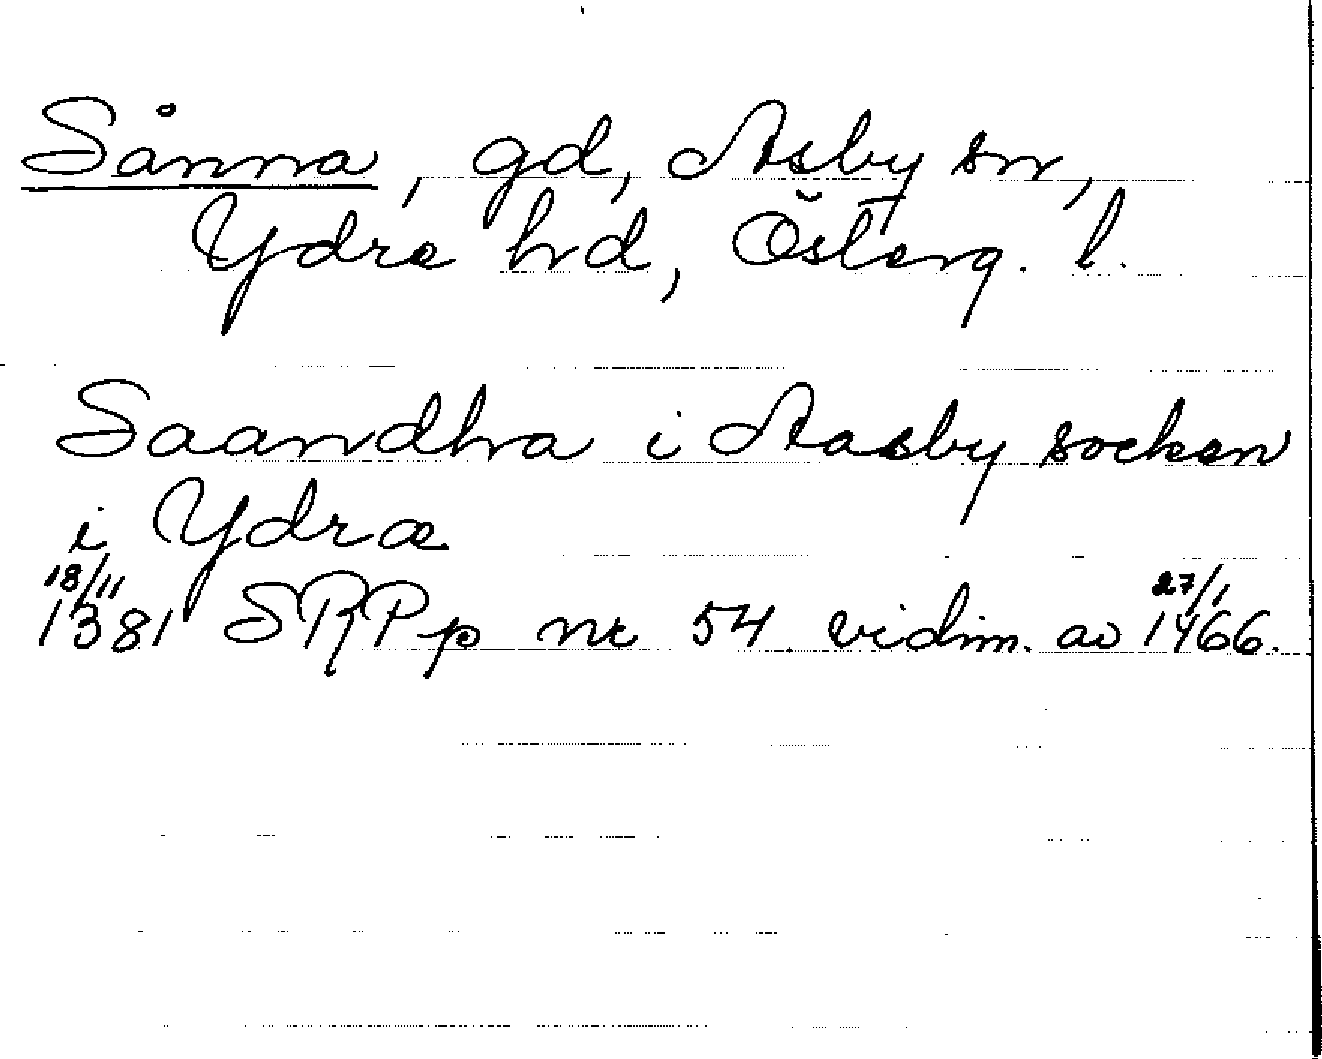 Sånna, gd, Asby sn,
Ydre hd, Österg. l.
Saandha i Aasby socken
i Ydræ
18/11 1381 SRPp nr 54 vidim. av 27/1 1466.